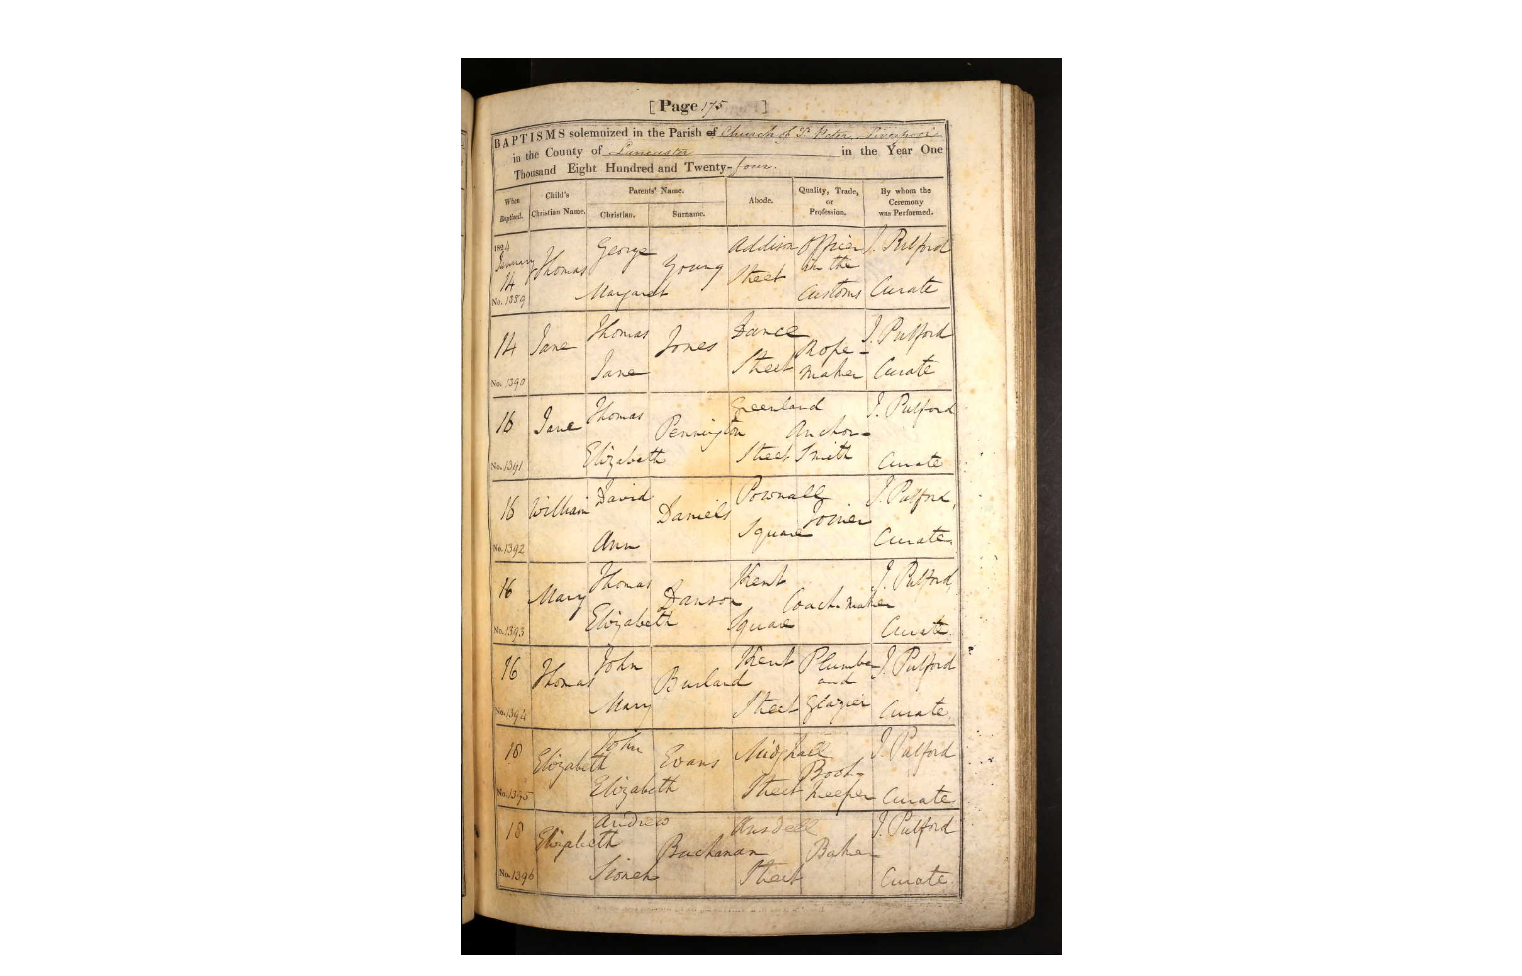 [Page 175 ]
BAPTISMS solemnized in the Parish of Church of St. Peter Liverpool
in the County of Lancaster in the Year One
Thousand Eight Hundred and Twenty-four.
When Baptized. Child's Christian Name. Parents' Name. Christian. Surname. Abode. Quality, Trade, or Profession. By whom the Ceremony was Performed.
1824 January 14 No. 1389 Thomas George Margaret Young Addison Street Officer in the Customs J. Pulford Curate
14 No. 1390 Jane Thomas Jane Jones Vance Street Rope-maker J. Pulford Curate
16 No. 1391 Jane Thomas Elizabeth Pennington Greenland Street Anchor-Smith J. Pulford Curate
16 No. 1392 William David Ann Daniels Pownall Square Joiner J. Pulford, Curate.
16 No. 1393 Mary Thomas Elizabeth Danson Kent Square Coach-maker J. Pulford, Curate.
16 No. 1394 Thomas John Mary Burland Kent Street Plumber and Glazier J. Pulford Curate.
18 No. 1395 Elizabeth John Elizabeth Evans Midghall Street Book-Keeper J. Pulford Curate
18 No. 1396 Elizabeth Andrew Buchanan Ansdell Street Baker J. Pulford Curate.